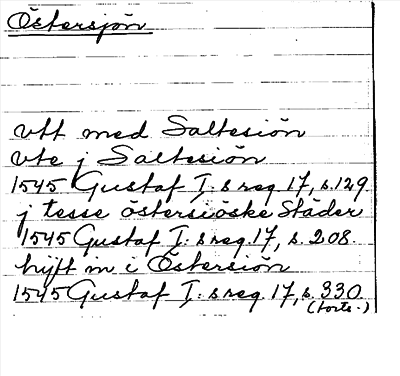 Östersjön
vtt med Saltesiön
vte j Saltesiön
1545 Gustaf I: s reg. 17, s. 129.
j tesse östersiöske Städer
1545 Gustaf I: s reg. 17, s. 208.
m i Östersiön
1545 Gustaf I: s reg. 17, s. 330
(forts.)